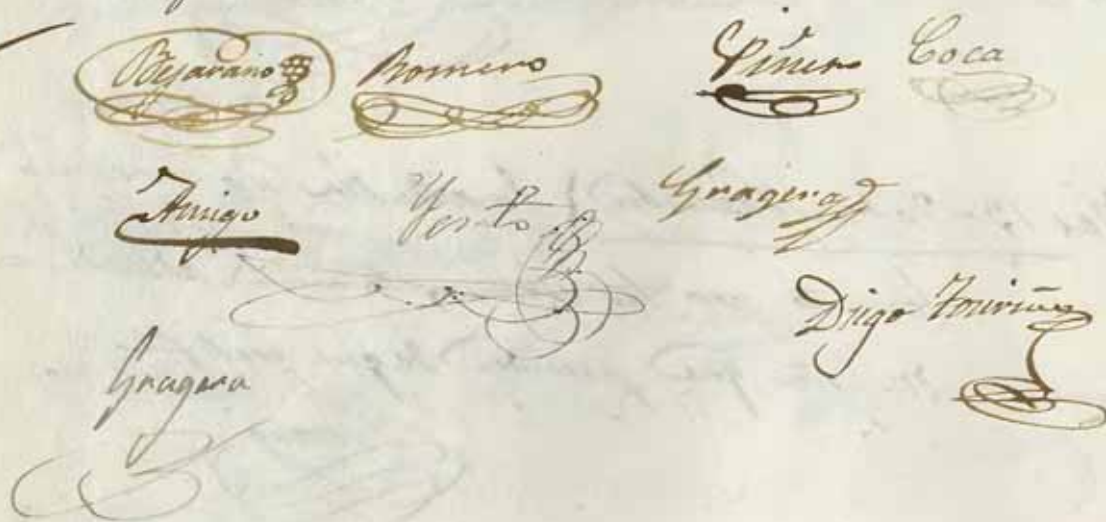 Bejarano Romero Piñero Coca
Amigo Gragera
Diego
Gragera